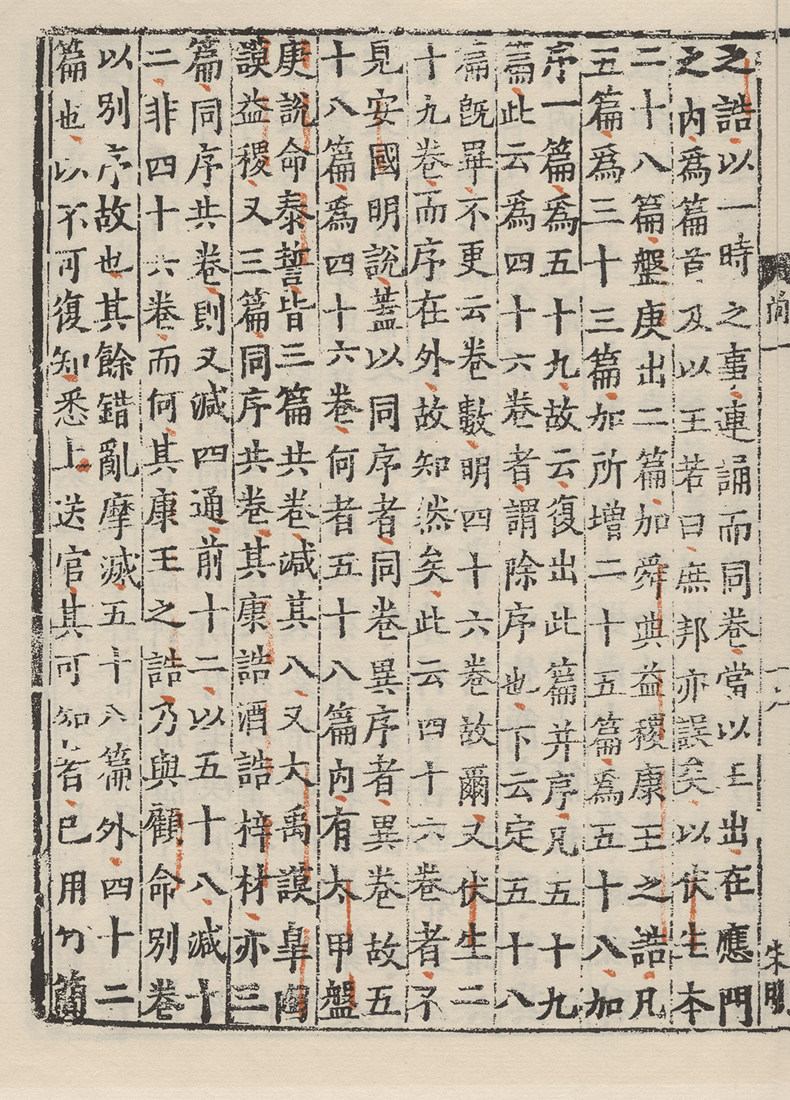 之誥以一時之事連誦而同卷當以王出在應門
之內爲篇首及以王若曰庶邦亦誤矣以伏生本
二十八篇盤庚出二篇加舜典益稷康王之誥凡
五篇爲三十三篇加所增二十五篇爲五十八加
序一篇爲五十九故云復出此篇并序凡五十九
篇此云爲四十六卷者謂除序也下云定五十八
篇旣畢不更云卷數明四十六卷故爾又伏生二
十九卷而序在外故知然矣此云四十六卷者不
見安國明說蓋以同序者同卷異序者異卷故五
十八篇爲四十六卷何者五十八篇內有太甲盤
庚說命泰誓皆三篇共卷減其八又大禹謨皐陶
謨益稷又三篇同序共卷其康誥酒誥梓材亦三
篇同序共卷則又減四通前十二以五十八減十
二非四十六卷而何其康王之誥乃與顧命別卷
以別序故也其餘錯亂摩滅五十八篇外四十二
篇也以不可復知悉上送官其可知者已用竹簡
萹一
十八
朱明